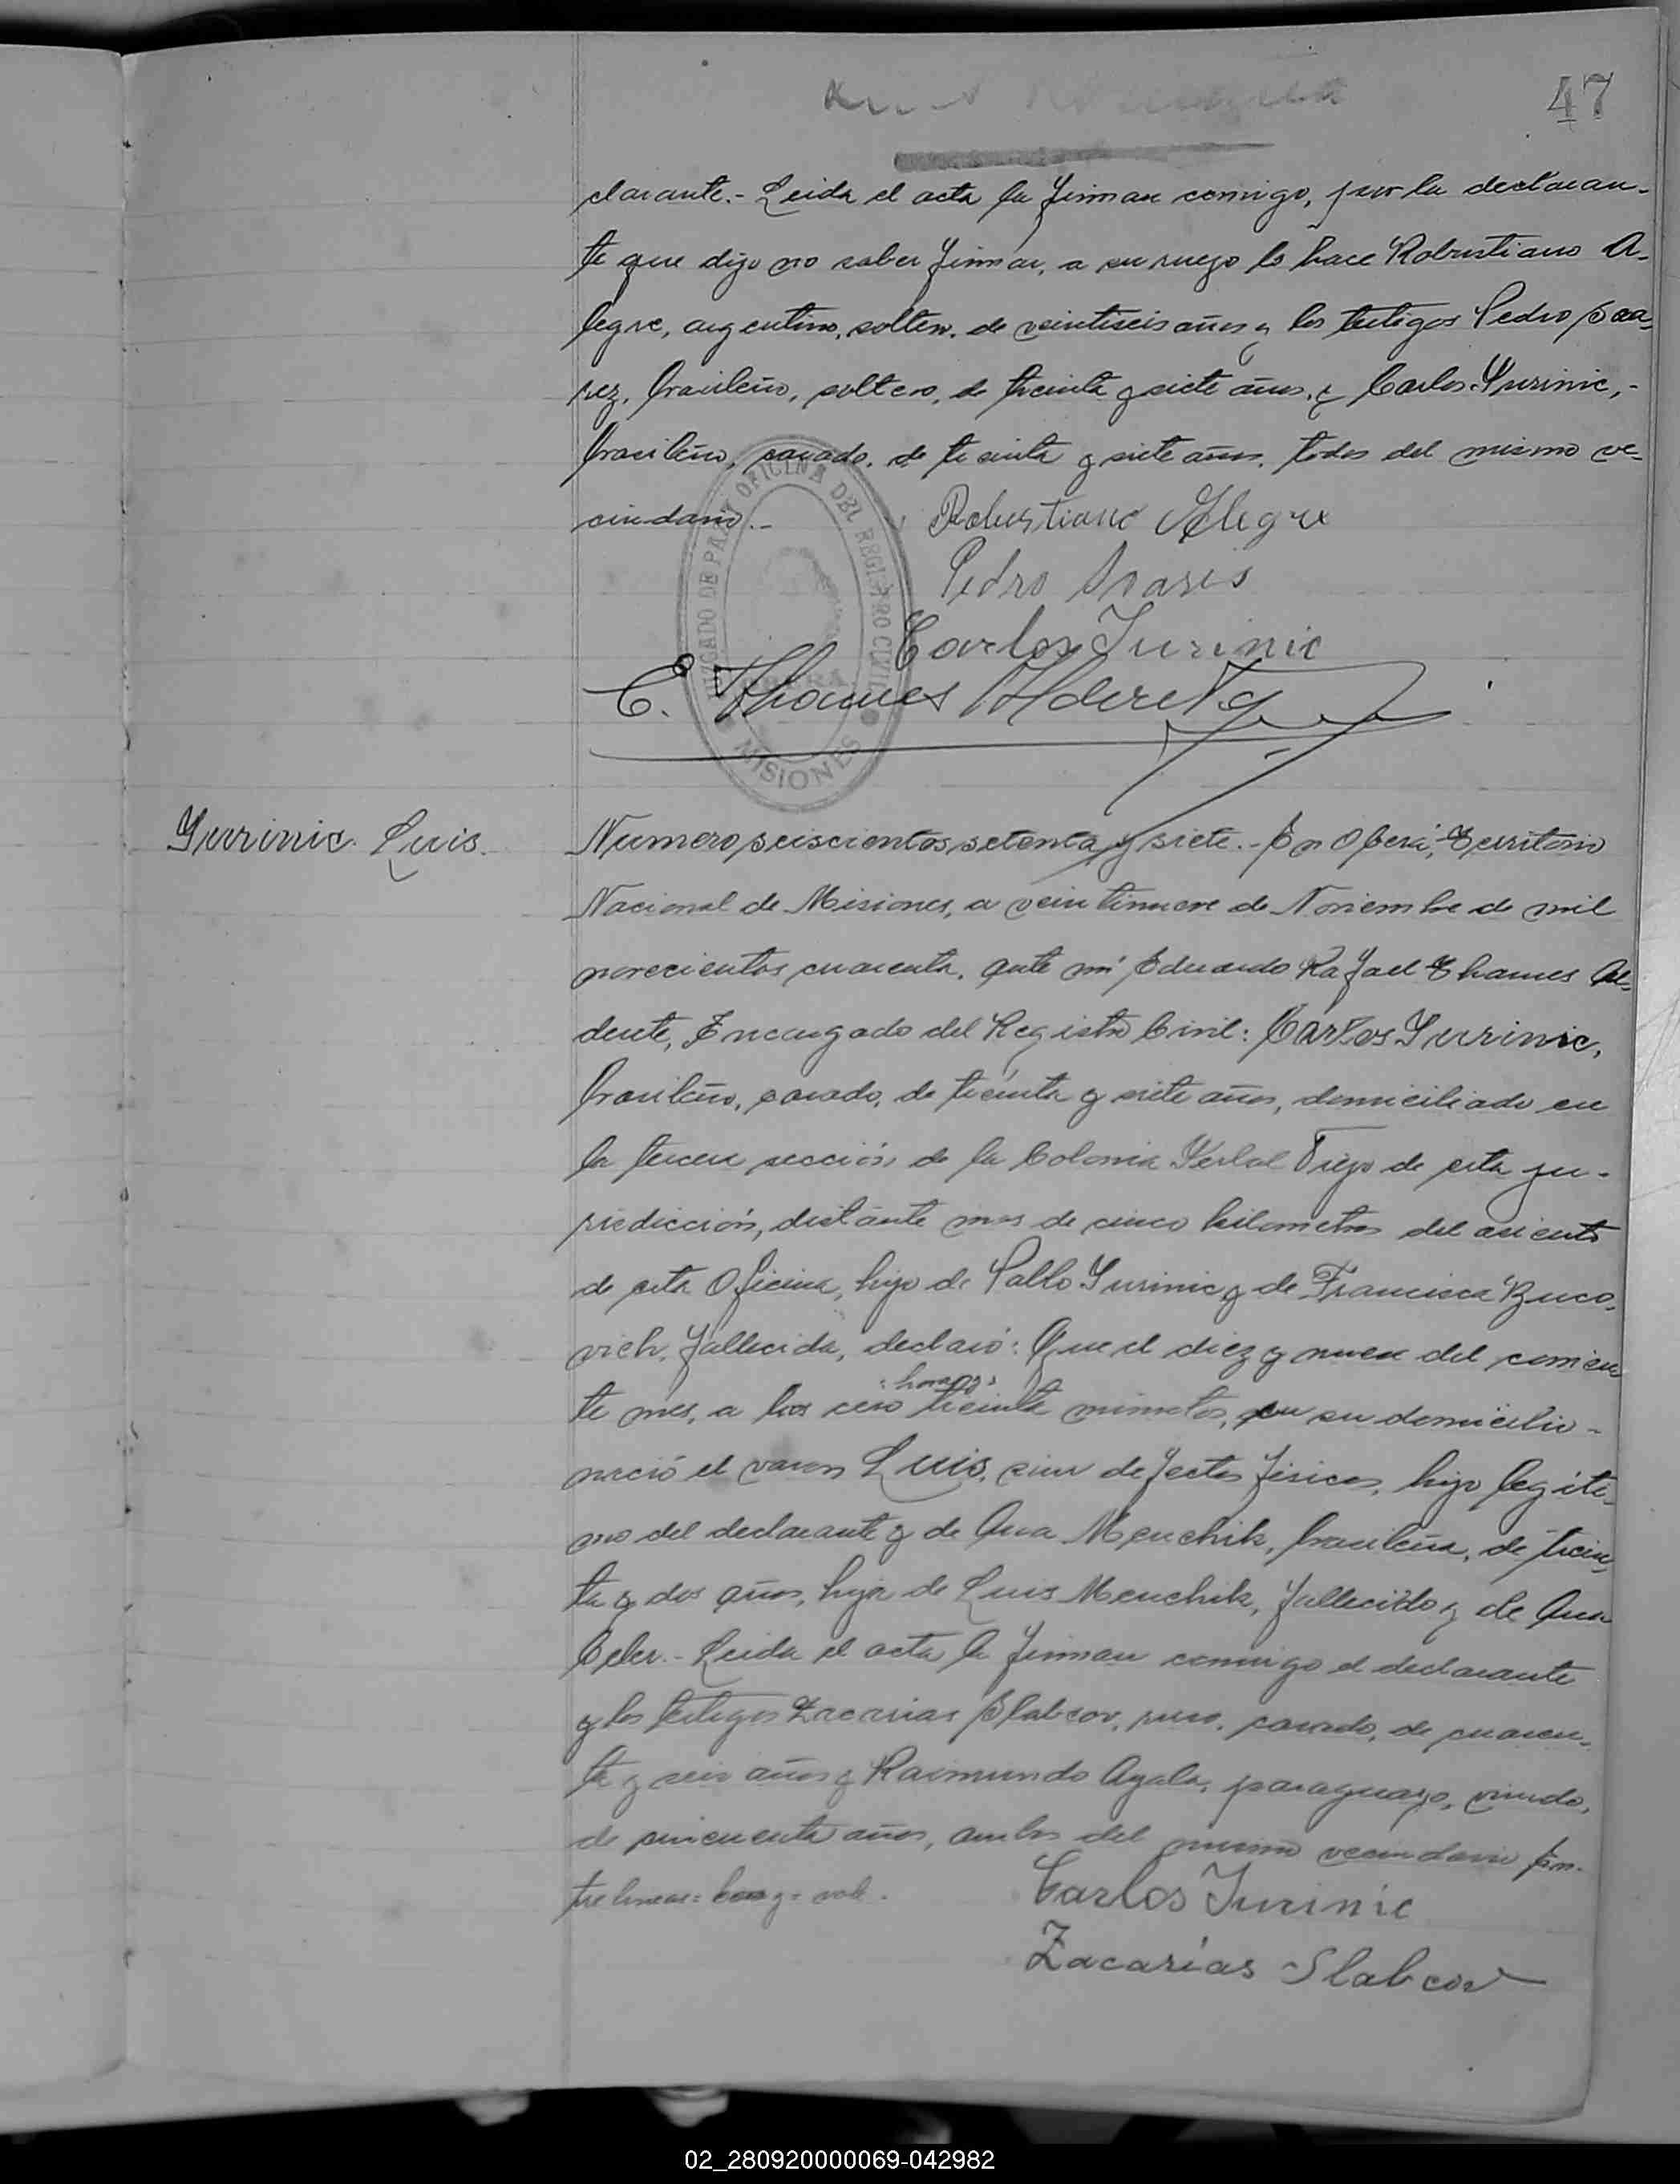 47
clarante.- Leida el acta la firman conmigo, por la declaran-
te que dijo no saber firmar, a su ruego lo hace Robustiano A-
legre, argentino, soltero, de veintiseis años y los testigos Pedro Soa-
rez, brasileño, soltero, de treinta y siete años, y Carlos Yurinic,-
brasileño, casado, de treinta y siete años, todos del mismo ve-
cindario.-
Robustiano Alegre
Pedro Soares
Carlos Yurinic
E. Thames Alderete
JUZGADO DE PAZ Y OFICINA DEL REGISTRO CIVIL
OBERA
MISIONES
Yurinic Luis.
Numero seiscientos setenta y siete.- En Oberá, Territorio
Nacional de Misiones, a veintinueve de Noviembre de mil
novecientos cuarenta, ante mí Eduardo Rafael Thames Al-
derete, Encargado del Registro Civil: Carlos Yurinic,
brasileño, casado, de treinta y siete años, domiciliado en
la tercera sección de la Colonia Yerbal Viejo de esta ju-
risdicción, distante mas de cinco kilometros del asiento
de esta Oficina, hijo de Pablo Yurinic y de Francisca Buco-
vich, fallecida, declaró: Que el diez y nueve del corrien-
te mes, a las cero horas y treinta minutos, en su domicilio-
nació el varon Luis, sin defectos fisicos, hijo legiti-
mo del declarante y de Ana Menchik, brasileña, de trein-
ta y dos años, hija de Luis Menchik, fallecido y de Ana
Leida el acta la firman conmigo el declarante
y los testigos Zacarias Slabcov, ruso, casado, de cuaren-
ta y seis años y Raimundo Ayala, paraguayo, viudo,
de cincuenta años, ambos del mismo vecindario En-
tre lineas= horas y= vale.
Carlos Yurinic
Zacarías Slabcov
02_280920000069-042982